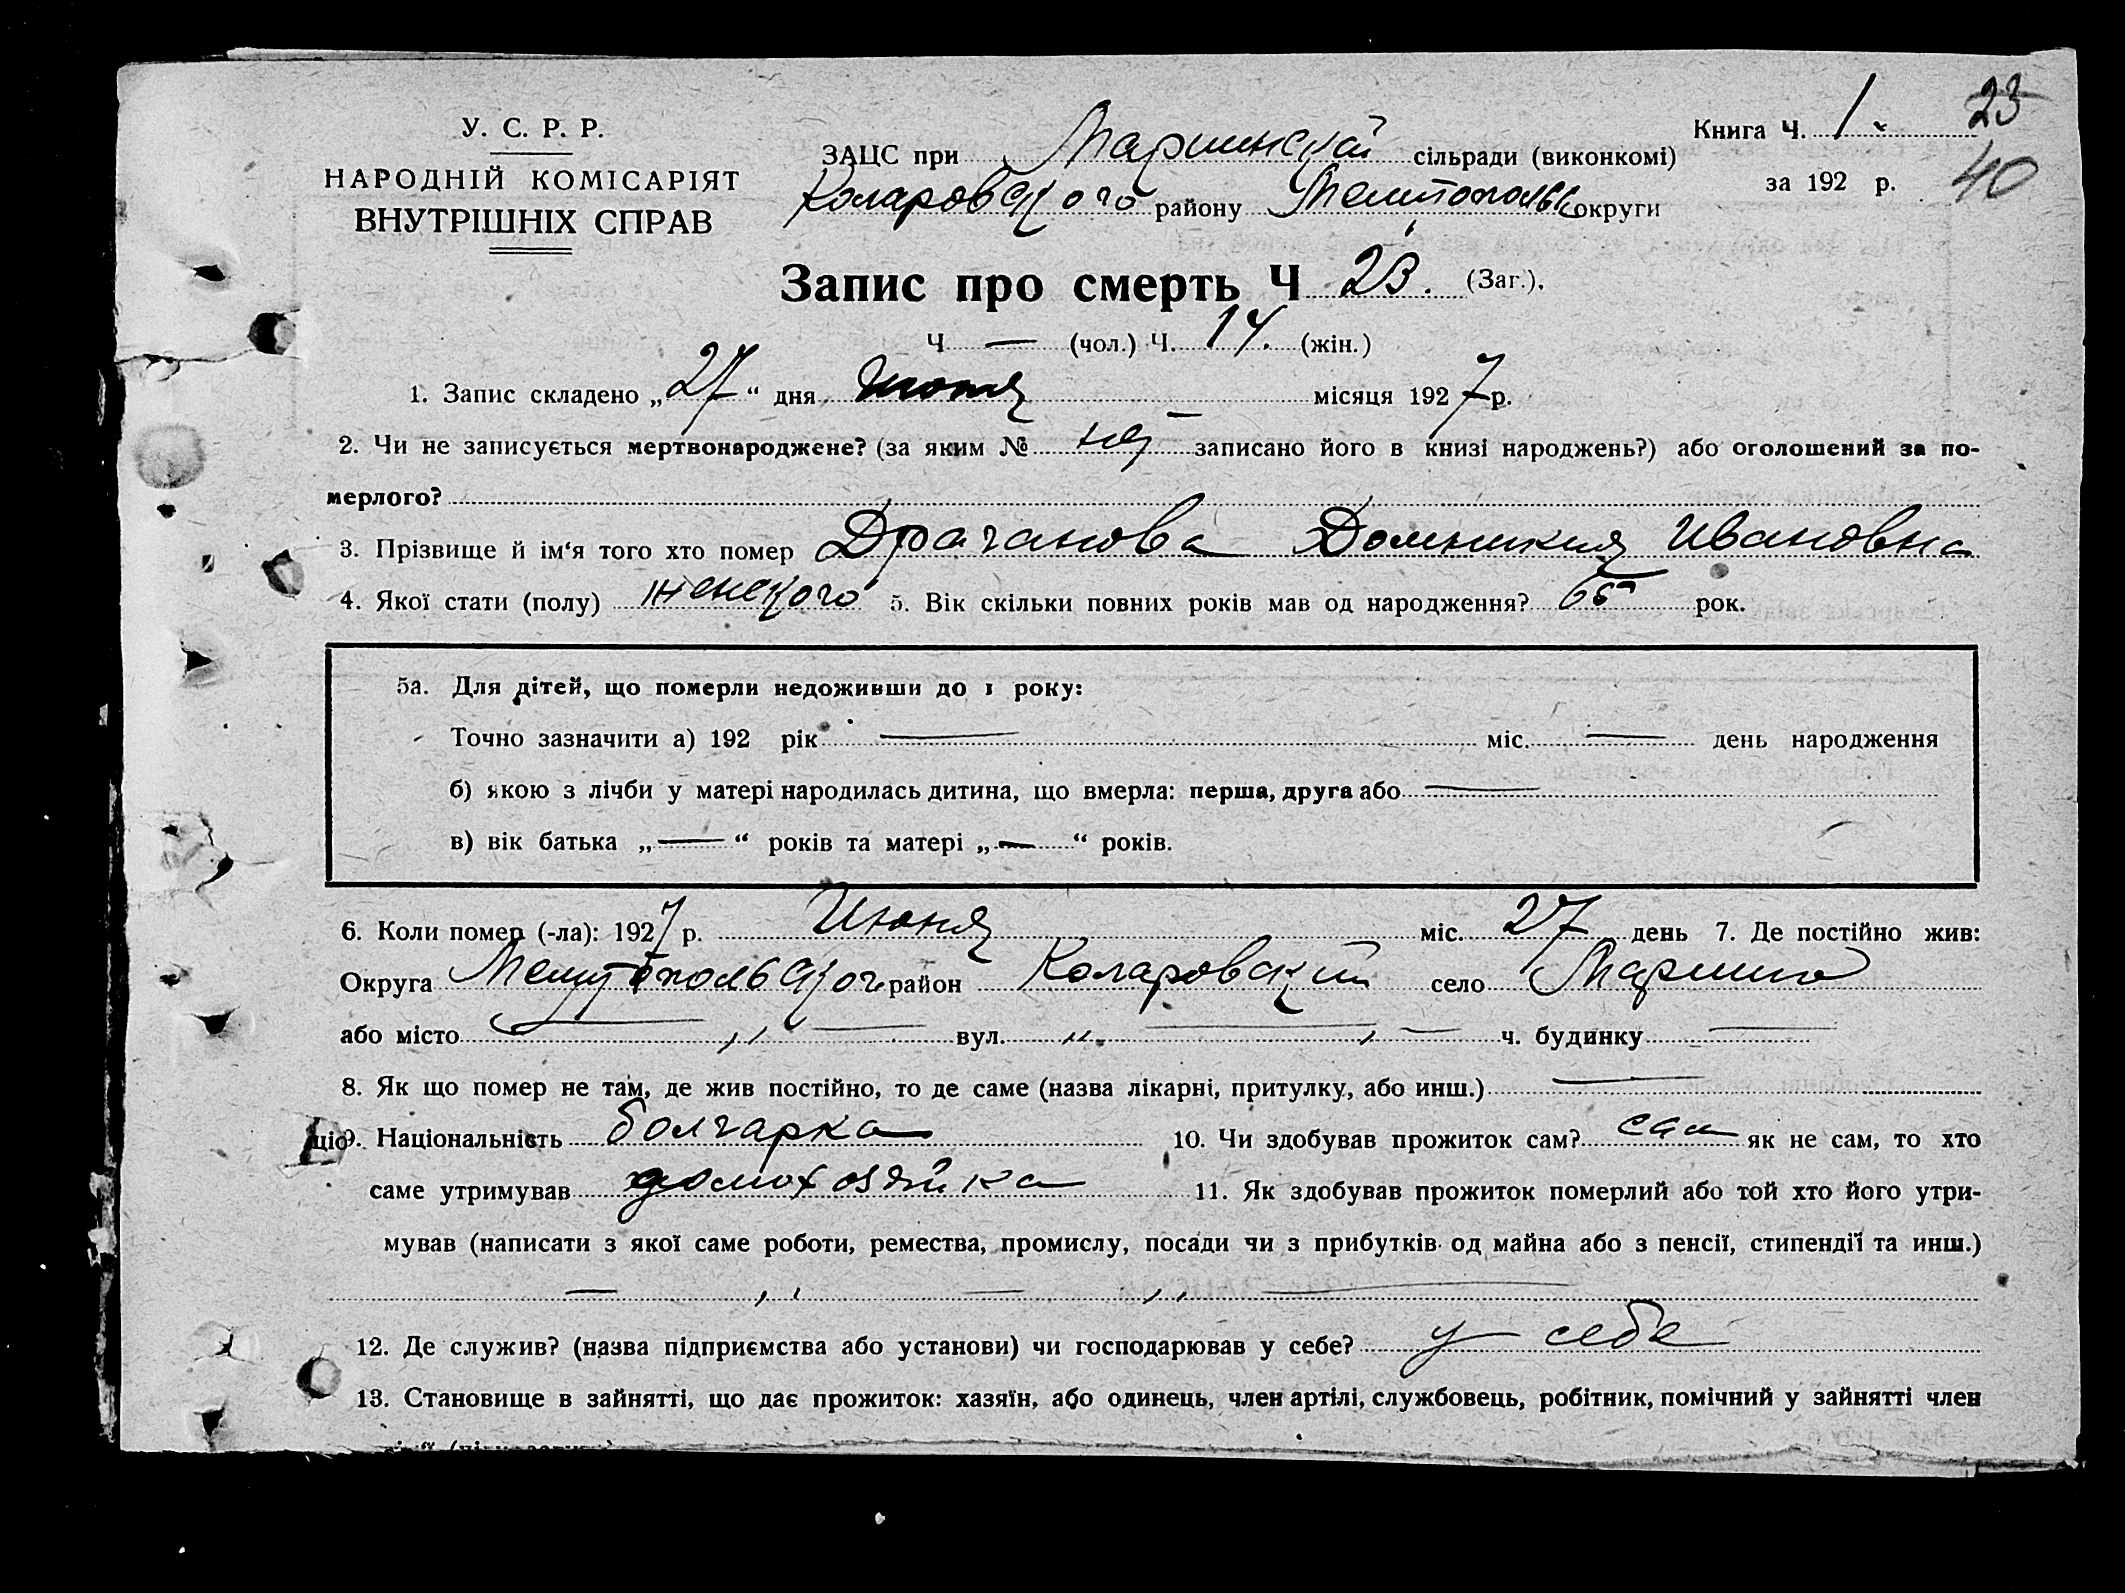 У. С. Р. Р.
НАРОДНІЙ КОМІСАРІЯТ
ВНУТРІШНІХ СПРАВ
ЗАЦС при Мариинской сільради (виконкомі)
Коларовского району Мелитопольск округи
Книга Ч. 1
23
за 192 р.
40
Запис про смерть Ч 23. (Заг.).
Ч — (чол.) Ч. 14. (жін.)
1. Запис складено „27“ дня Июня місяця 1927 р.
2. Чи не записується мертвонароджене? (за яким № записано його в книзі народжень?) або оголошений за по-
мерлого?
3. Прізвище й ім‘я того хто помер Драганова Домникия Ивановна
4. Якої стати (полу) женского 5. Вік скільки повних років мав од народження? 65 рок.
5а. Для дітей, що померли недоживши до 1 року:
Точно зазначити а) 192 рік — міс. — день народження
б) якою з лічби у матері народилась дитина, що вмерла: перша, друга або —
в) вік батька „—“ років та матері „—“ років.
6. Коли помер (-ла): 1927 р. Июня міс. 27 день 7. Де постійно жив:
Округа Мелитопольского район Коларовский село Марино
або місто — „ — вул. „ — „ — ч. будинку —
8. Як що помер не там, де жив постійно, то де саме (назва лікарні, притулку, або инш.) —
ціо9. Національність болгарка 10. Чи здобував прожиток сам? сам як не сам, то хто
саме утримував домохозяйка 11. Як здобував прожиток померлий або той хто його утри-
мував (написати з якої саме роботи, ремества, промислу, посади чи з прибутків од майна або з пенсії, стипендії та инш.)
— „ — „ —
12. Де служив? (назва підприємства або установи) чи господарював у себе? у себе
13. Становище в зайнятті, що дає прожиток: хазяїн, або одинець, член артілі, службовець, робітник, помічний у зайнятті член